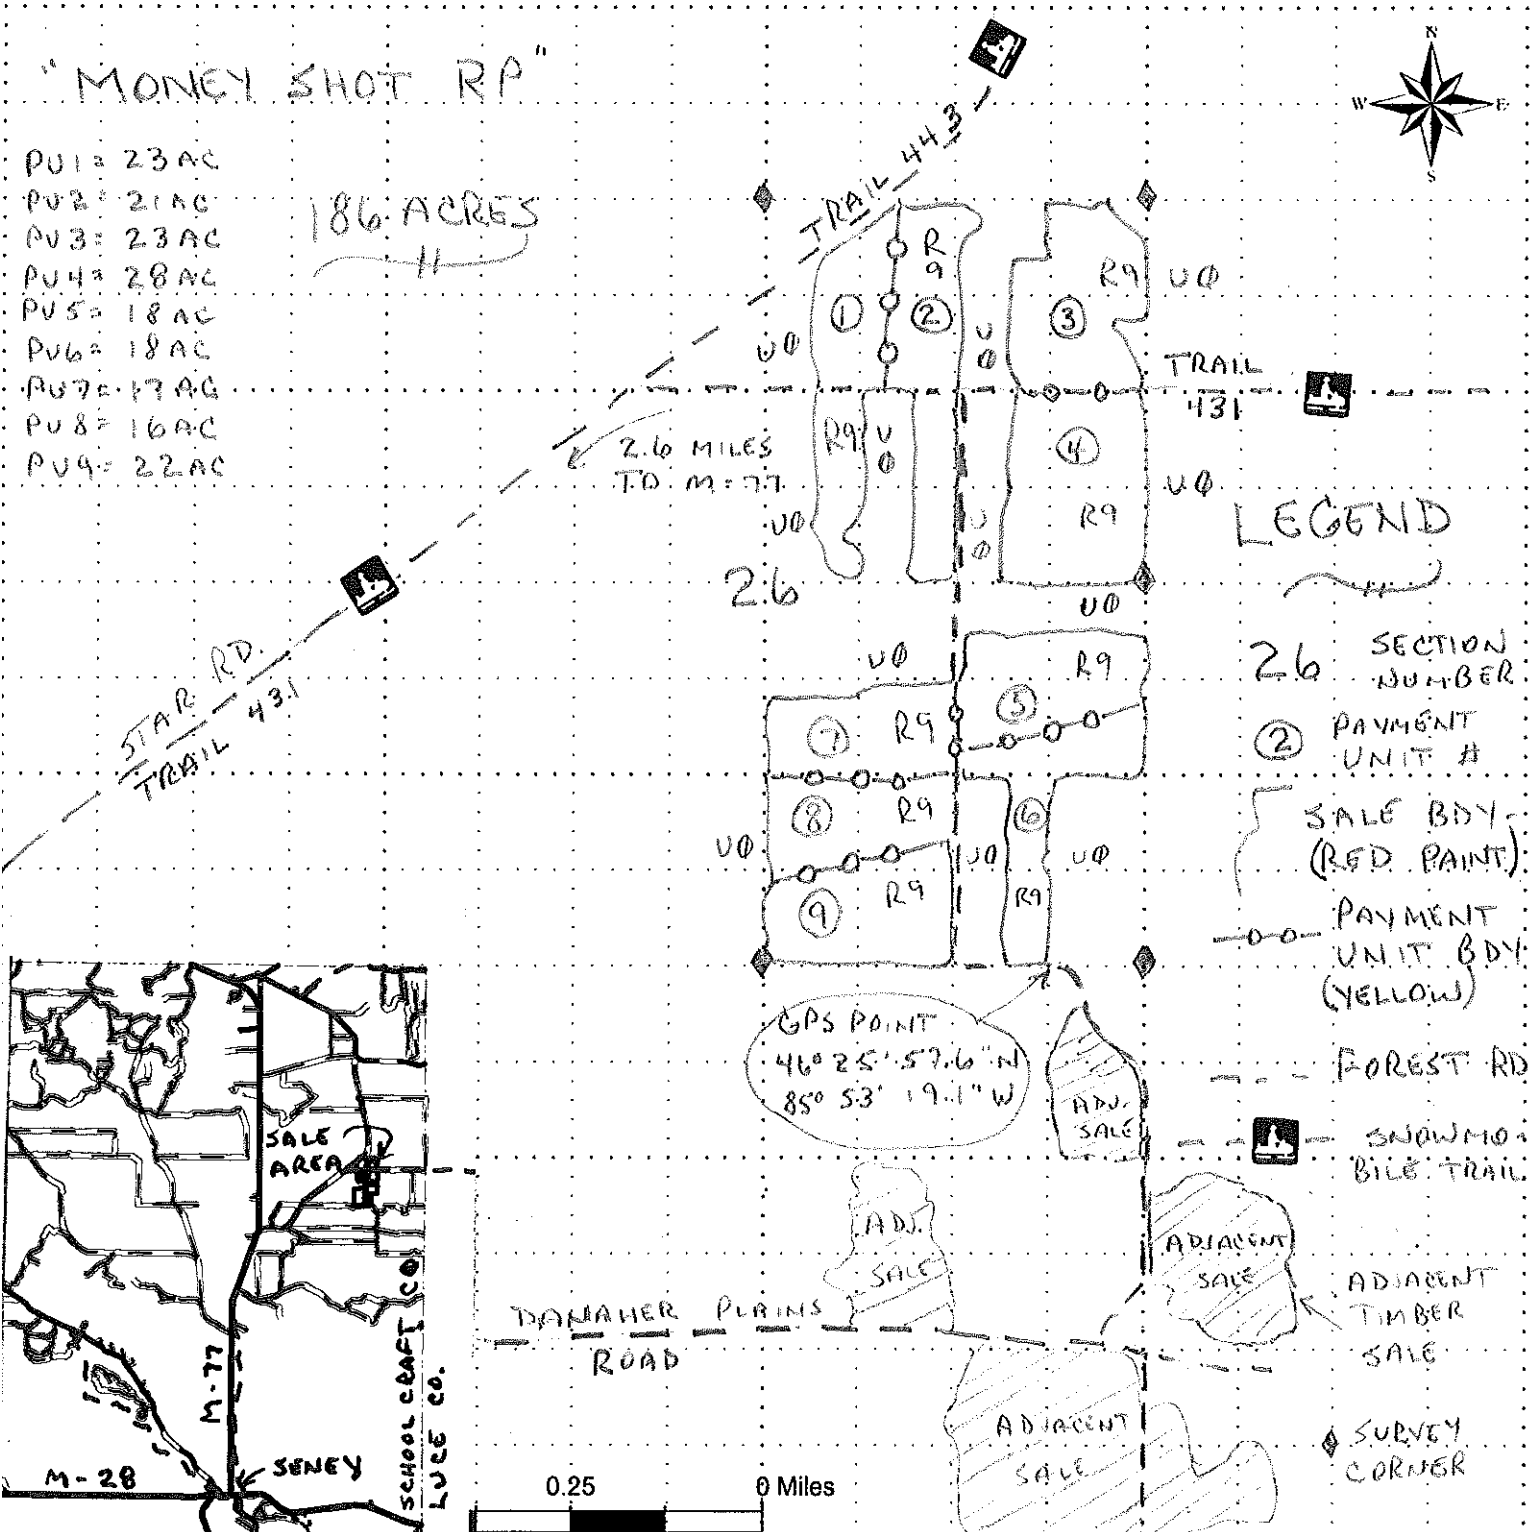 "MONEY SHOT RP"
PU1= 23 AC
PU2= 21 AC
PU3= 23 AC
PU4= 28 AC
PU5= 18 AC
PU6= 18 AC
PU7= 17 AC
PU8= 16 AC
PU9= 22 AC
186 ACRES
N
W E
S
TRAIL 443
R
9
1
2
UØ
U
Ø
R9
3
UØ
TRAIL
431
2.6 MILES
TO M-77
R9
U
Ø
4
UØ
UØ
U
Ø
R9
26
UØ
STAR RD.
TRAIL 431
UØ
R9
7
R9
5
8
R9
6
UØ
UØ
UØ
9
R9
R9
GPS POINT
46° 25' 57.6" N
85° 53' 19.1" W
ADJ.
SALE
ADJ.
SALE
ADJACENT
SALE
DANAHER PLAINS
ROAD
ADJACENT
SALE
LEGEND
26 SECTION
NUMBER
2 PAYMENT
UNIT #
SALE BDY-
(RED PAINT)
PAYMENT
UNIT BDY
(YELLOW)
FOREST RD
SNOWMO-
BILE TRAIL
ADJACENT
TIMBER
SALE
SURVEY
CORNER
SALE
AREA
M-77
SCHOOLCRAFT CO
LUCE CO.
M-28
SENEY
0.25 0 Miles